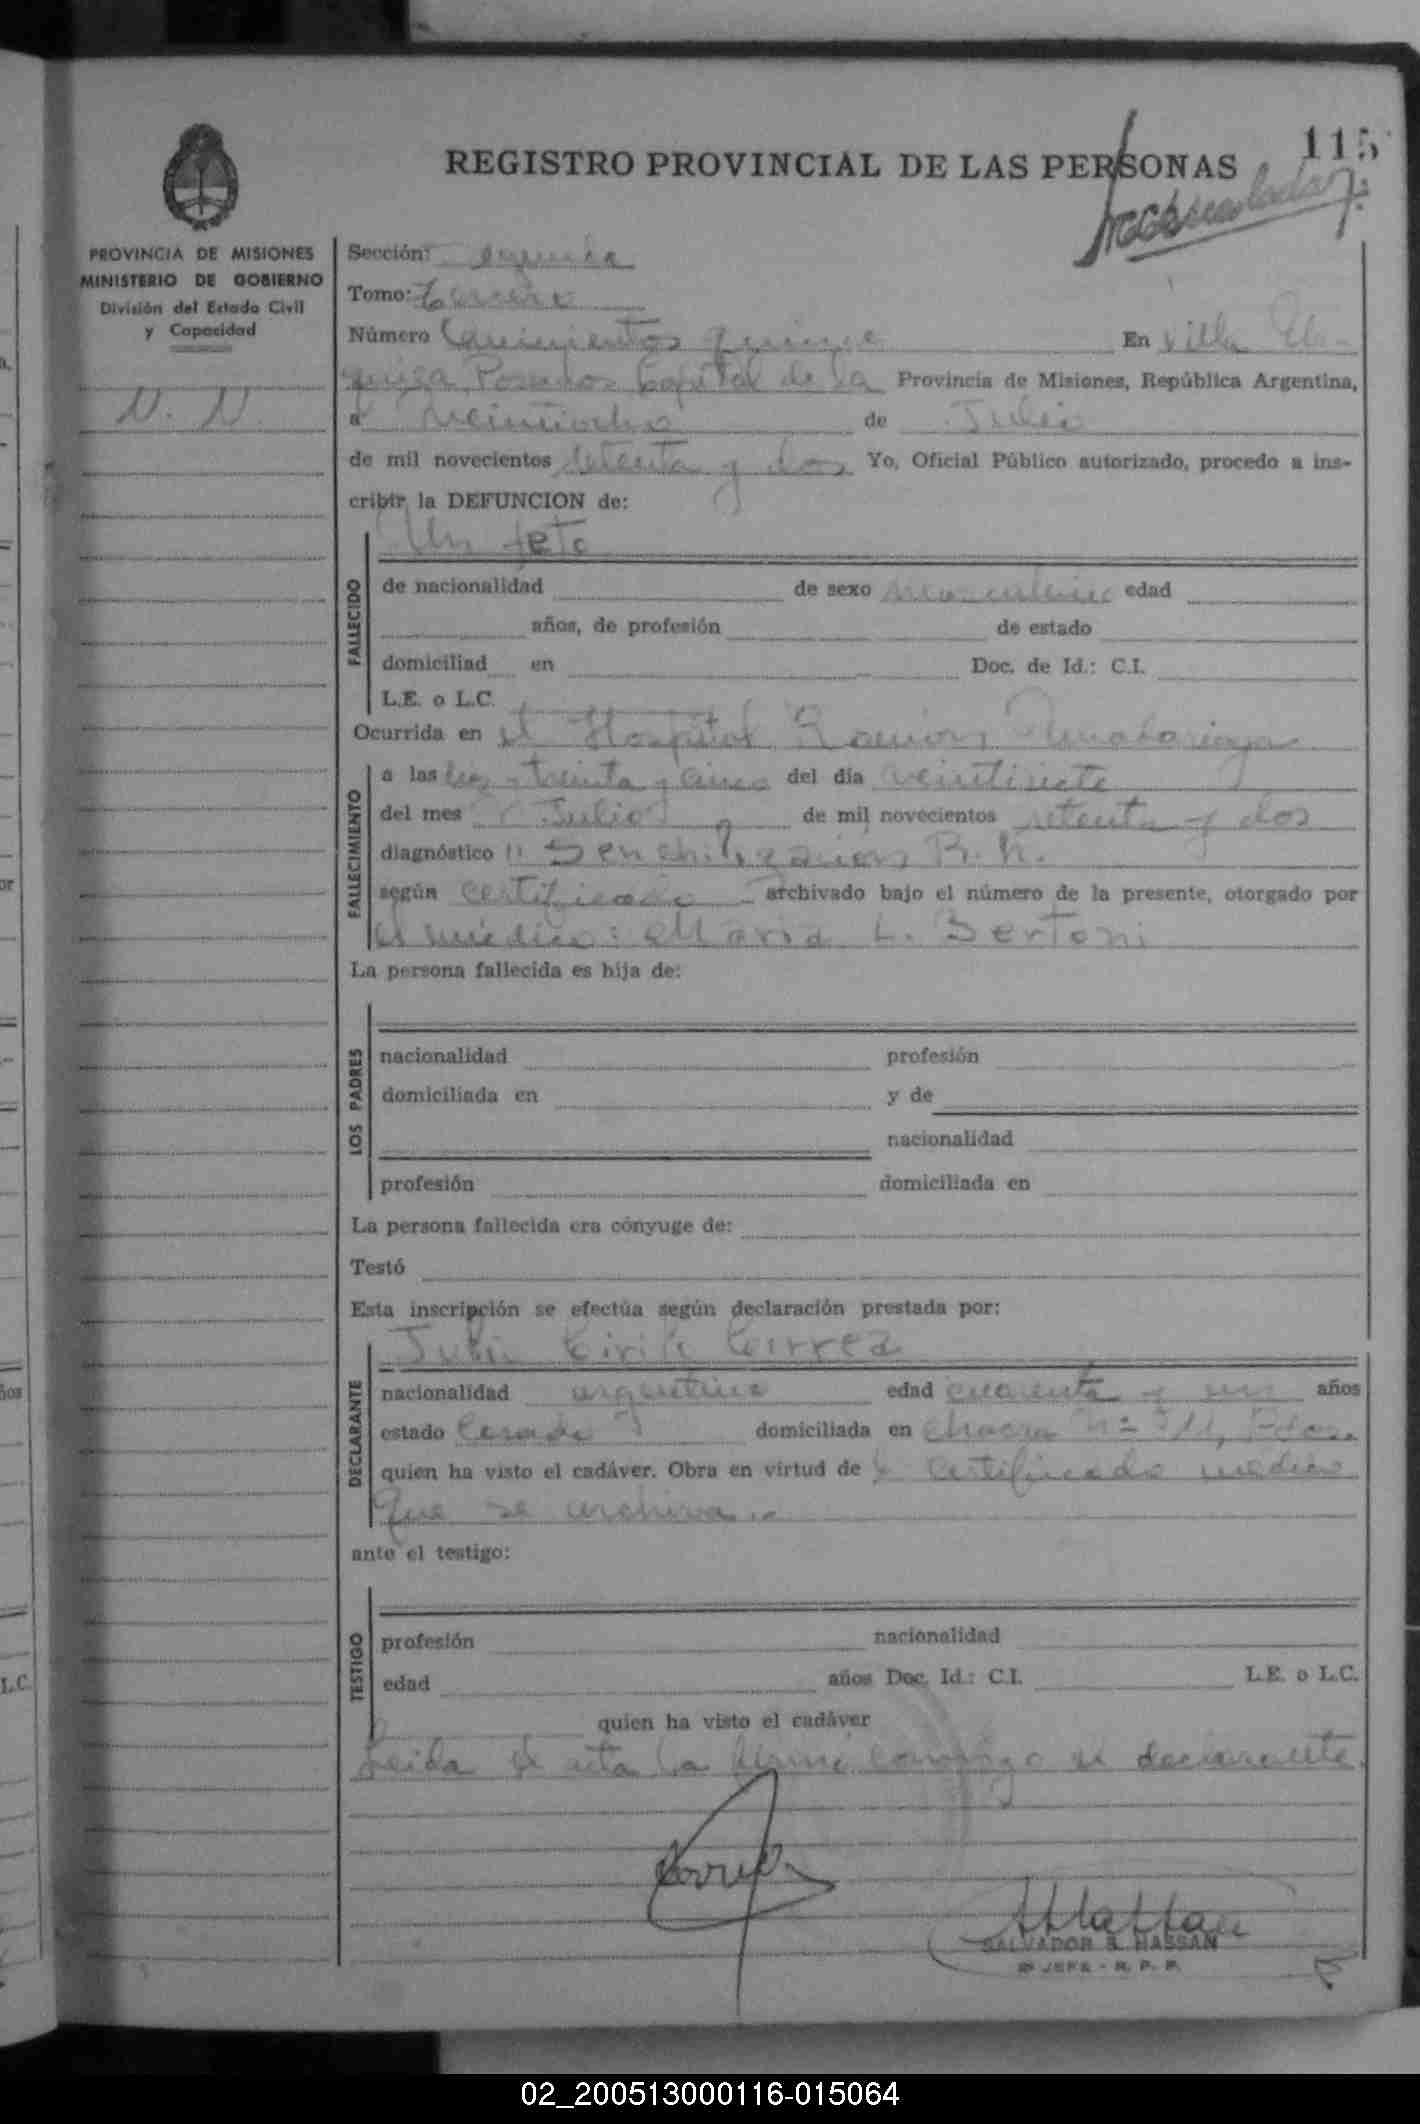 115
REGISTRO PROVINCIAL DE LAS PERSONAS
PROVINCIA DE MISIONES
MINISTERIO DE GOBIERNO
División del Estado Civil
y Capacidad
N. N.
Sección: segunda
Tomo: tercero
Número Quinientos quince En Villa Ur-
quiza, Posadas Capital de la Provincia de Misiones, República Argentina,
a veintiocho de Julio
de mil novecientos setenta y dos Yo, Oficial Público autorizado, procedo a ins-
cribir la DEFUNCION de:
Un feto
FALLECIDO
de nacionalidad de sexo masculino edad
años, de profesión de estado
domiciliad en Doc. de Id.: C.I.
L.E. o L.C.
Ocurrida en el Hospital Ramón Madariaga
FALLECIMIENTO
a las treinta y cinco del día veintisiete
del mes Julio de mil novecientos setenta y dos
diagnóstico R. N.
según certificado archivado bajo el número de la presente, otorgado por
el médico: Maria L. Bertoni
La persona fallecida es hija de:
LOS PADRES
nacionalidad profesión
domiciliada en y de
nacionalidad
profesión domiciliada en
La persona fallecida era cónyuge de:
Testó
Esta inscripción se efectúa según declaración prestada por:
Julio Cirilo Correa
DECLARANTE
nacionalidad argentino edad cuarenta y un años
estado Casado domiciliada en chacra Nº Pdas.
quien ha visto el cadáver. Obra en virtud de certificado médico
que se archiva.-
ante el testigo:
TESTIGO
profesión nacionalidad
edad años Doc. Id.: C.I. L.E. o L.C.
quien ha visto el cadáver
Leida el acta la firmó conmigo el declarante.
SALVADOR S. HASSAN
2º JEFE - R. P. P.
02_200513000116-015064